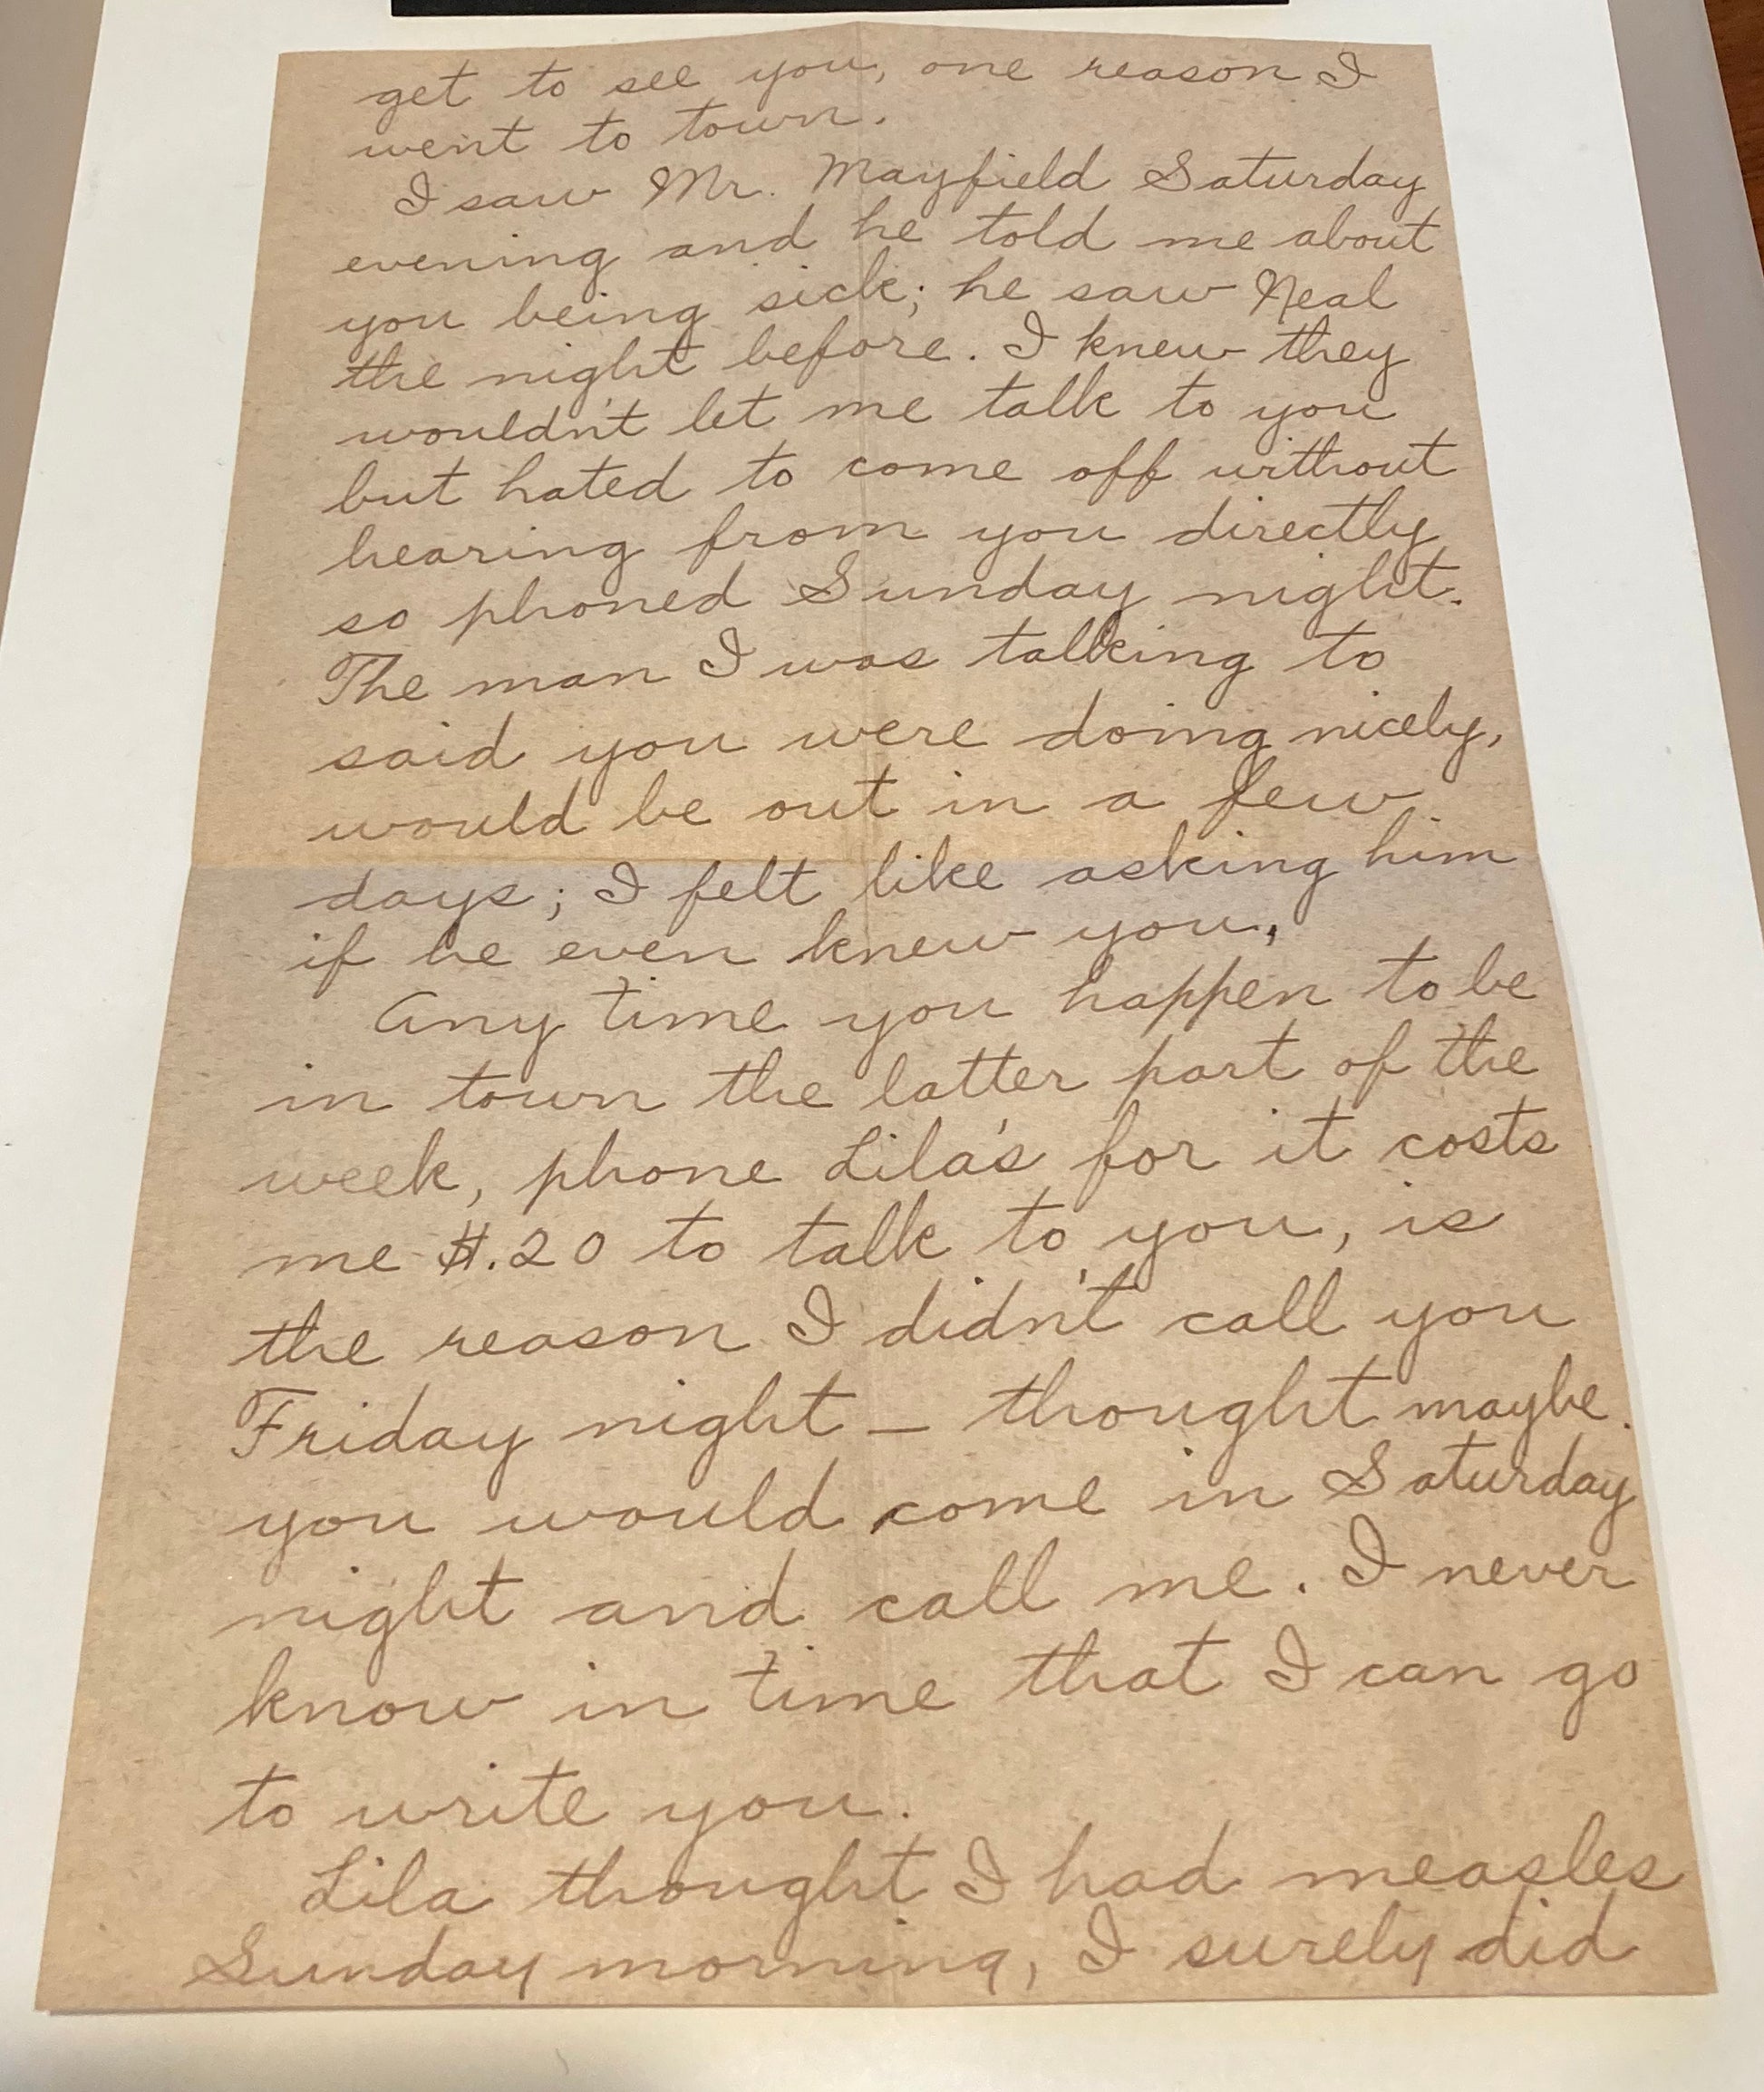 get to see you, one reason I
went to town.
I saw Mr. Mayfield Saturday
evening and he told me about
you being sick; he saw Neal
the night before. I knew they
wouldn't let me talk to you
but hated to come off without
hearing from you directly
so phoned Sunday night.
The man I was talking to
said you were doing nicely,
would be out in a few
days; I felt like asking him
if he even knew you.
Any time you happen to be
in town the latter part of the
week, phone Lila's for it costs
me $.20 to talk to you, is
the reason I didn't call you
Friday night – thought maybe
you would come in Saturday
night and call me. I never
know in time that I can go
to write you.
Lila thought I had measles
Sunday morning, I surely did